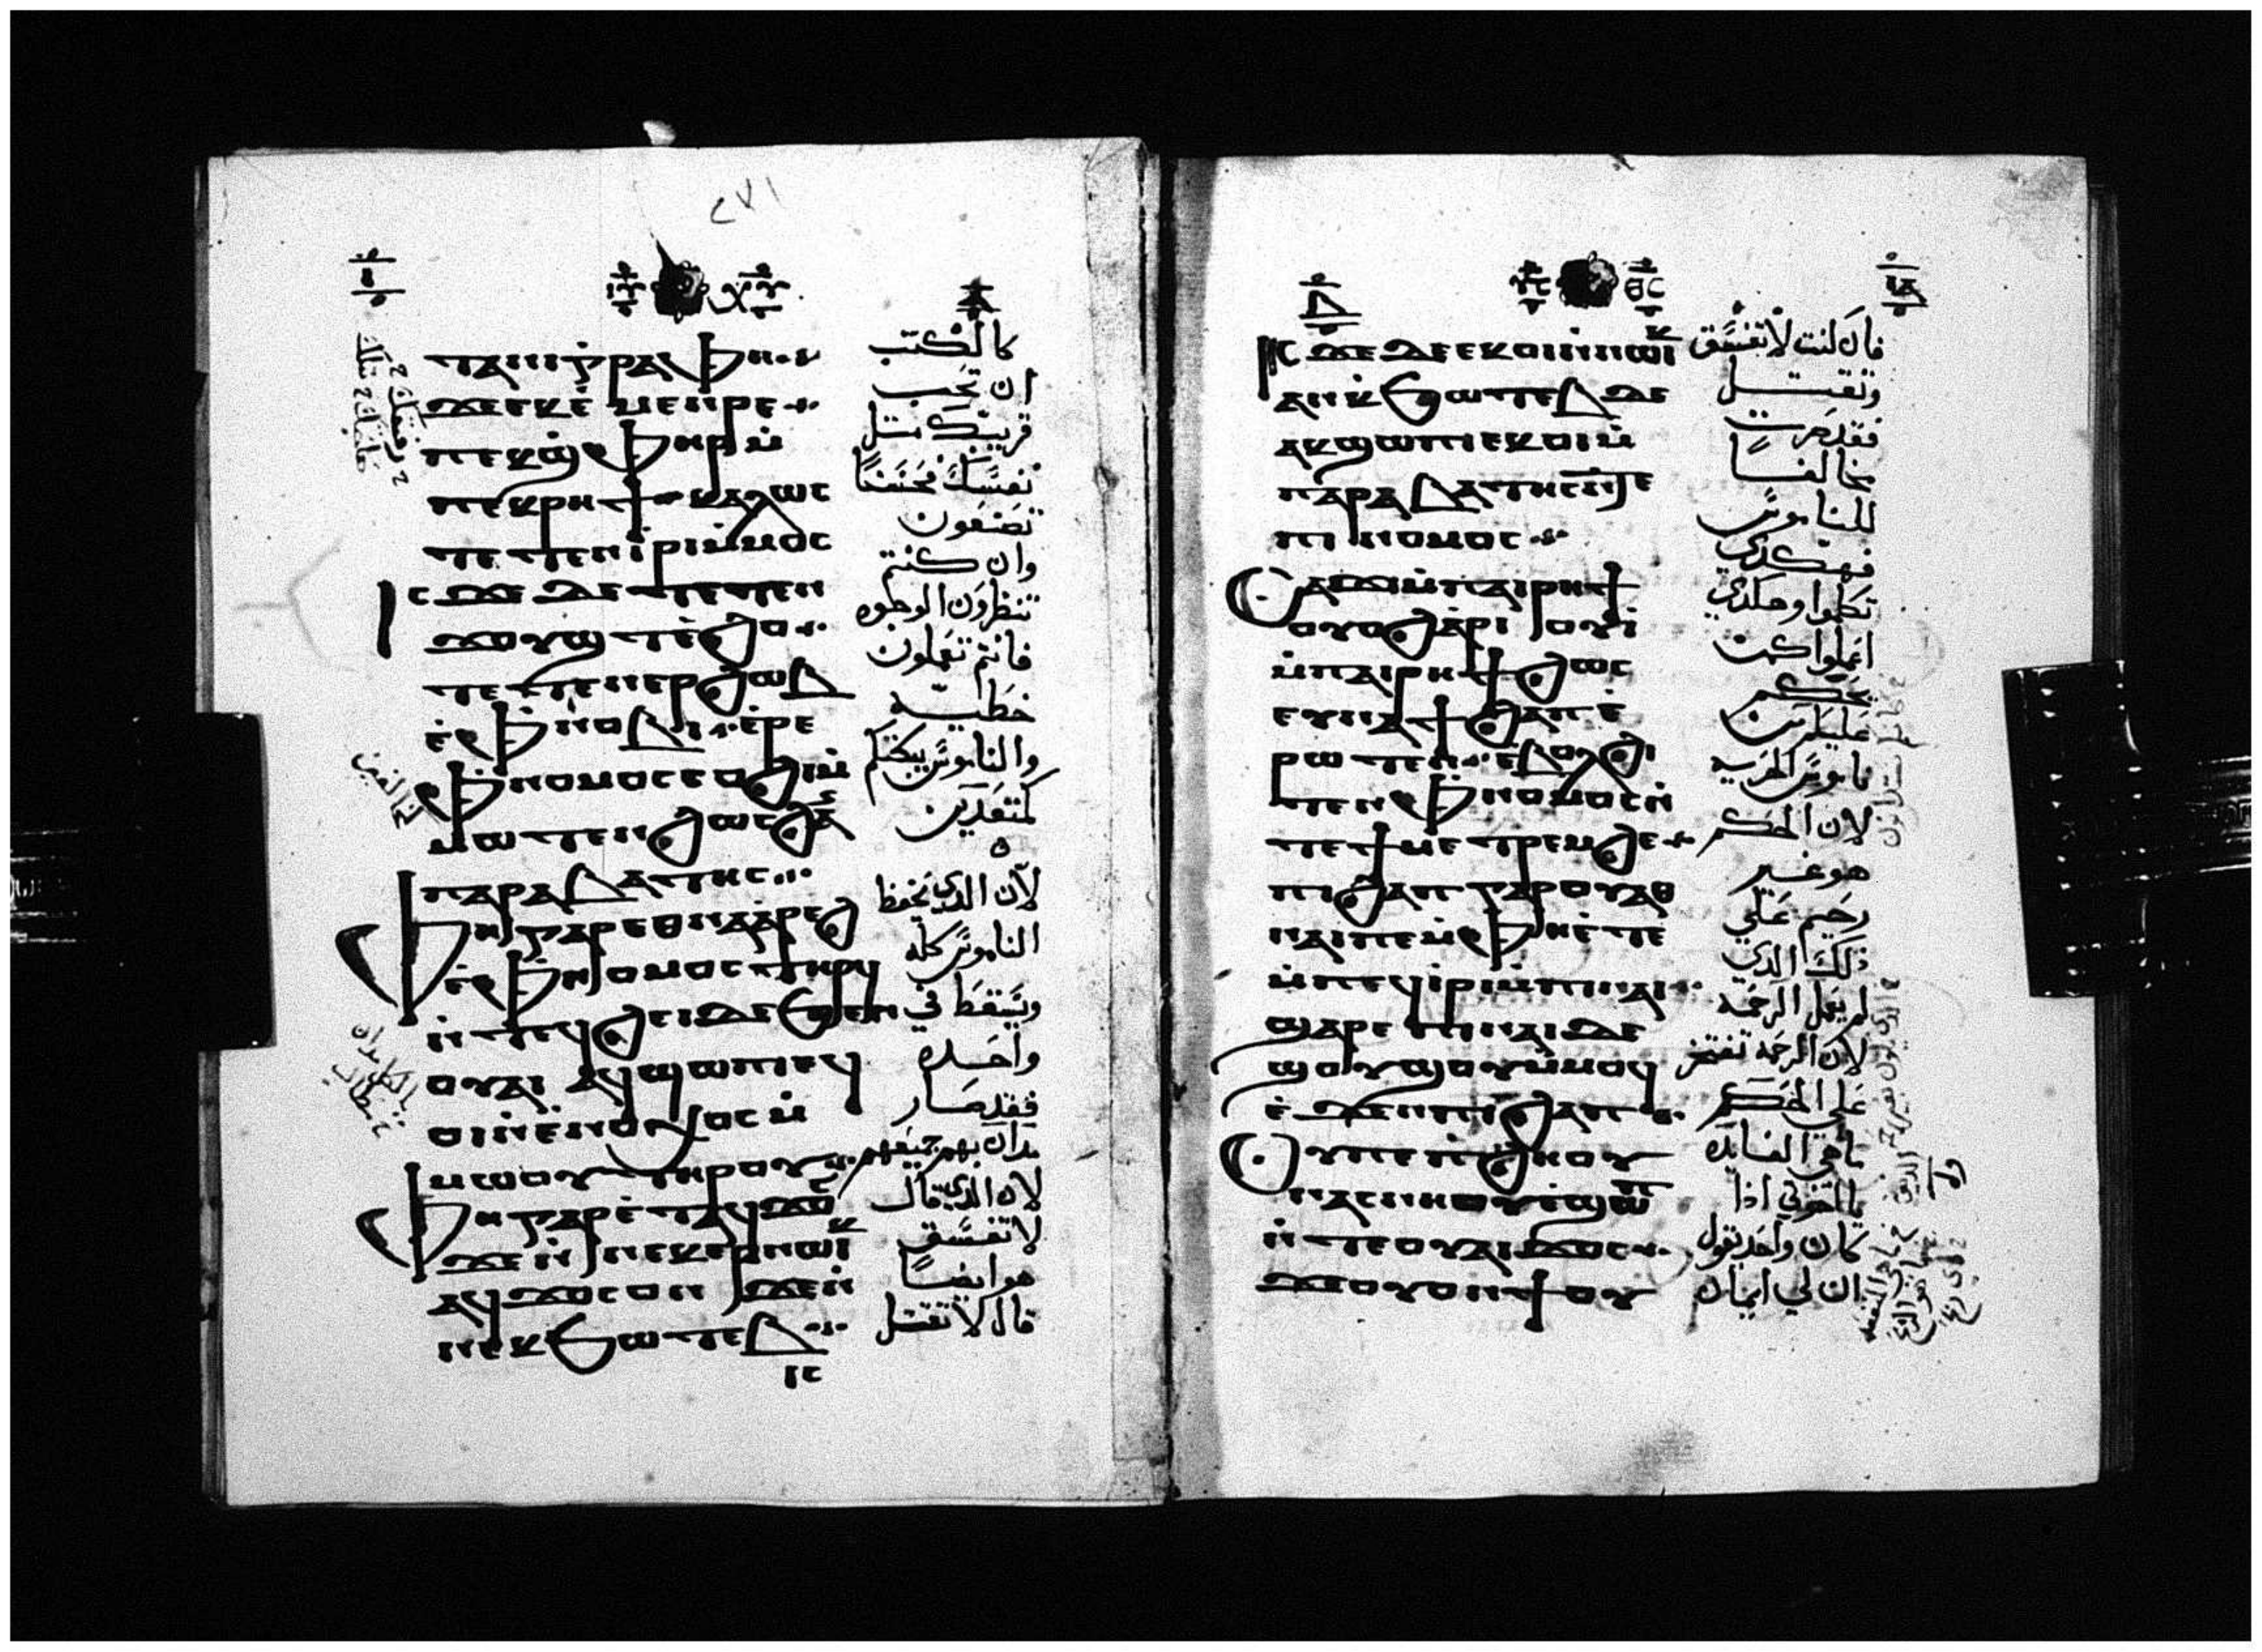 ٢٧١
ⲧⲁⲓⲅⲣⲁⲫⲏ
ϫⲉ ⲉⲕⲉ̀ⲙⲉⲛⲣⲉ
ⲡⲉⲕϣⲫⲏⲣ ⲙ̀
ⲡⲉⲕⲣⲏϯ ⲕⲁⲗⲱⲥ
ⲧⲉⲧⲉⲛⲓ̀ⲣⲓ ⲙ̀ⲙⲟⲥ
ⲓⲥϫⲉ ⲇⲉ ⲧⲉⲧⲉⲛ
ϫⲟⲩϣⲧ ⲉ̀ϩⲟ
ⲧⲉⲧⲉⲛⲉⲣϩⲱⲃ
ⲉ̀ⲫⲛⲟⲃⲓ ⲉ̀ⲣⲉ
ⲫⲛⲟⲙⲟⲥ ⲥⲟϩⲓ ⲙ̀
ⲙⲱⲧⲉⲛ ϩⲱⲥ ϩⲁⲛ
ⲡⲁⲣⲁⲃⲁⲧⲏⲥ
ⲫⲏ ⲅⲁⲣ ⲉⲑⲛⲁⲁ̀ⲣⲉϩ
ⲉ̀ⲫⲛⲟⲙⲟⲥ ⲧⲏⲣϥ
ⲛ̀ⲧⲉϥϩⲉⲓ ⲇⲉ ϧⲉⲛ
ⲟⲩⲁⲓ ⲁϥϣⲱⲡⲓ ⲉϥ
ⲟⲓ ⲛ̀ⲉ̀ⲛⲟⲭⲟⲥ ⲙ̀
ⲙⲱⲟⲩ ⲧⲏⲣⲟⲩ
ⲫⲏ ⲅⲁⲣ ⲉ̀ⲧⲁϥϫⲟⲥ
ϫⲉ ⲛ̀ⲛⲉⲕⲉⲣⲛⲱⲓⲕ
ⲁϥϫⲟⲥ ⲟⲛ ϫⲉ ⲛ̀
ⲛⲉⲕϧⲱⲧⲉⲃ
ⲓⲥ
كالكتب
ان تحب
قريبك مثل
نفسك فحسنا
تصنعون
وان كنتم
تنظرون الوجوه
فانتم تعملون
خطيه
والناموس يبكتكم
كمتعديين
لان الذي يحفظ
الناموس كله
ويسقط في
واحده
فقد صار
مدان بهم جميعهم
لان الذي قال
لا تفسق
هو ايضا
قال لا تقتل
ⲓⲥϫⲉ ⲇⲉ ⲉⲕⲟⲓ ⲛ̀ⲛⲱⲓⲕ
ⲁⲛ ⲕ̀ϧⲱⲧⲉⲃ ⲇⲉ
ⲁⲕϣⲱⲡⲓ ⲉⲕⲟⲓ ⲙ̀
ⲡⲁⲣⲁⲃⲁⲧⲏⲥ ⲛ̀ⲧⲉ
ⲡⲓⲛⲟⲙⲟⲥ
ⲥⲁϫⲓ ⲙ̀ⲡⲁⲓⲣⲏϯ
ⲟⲩⲟϩ ⲁ̀ⲣⲓⲟⲩⲓ̀
ⲙ̀ⲡⲁⲓⲣⲏϯ ϩⲱⲥ
ⲉⲩⲛⲁϯϩⲁⲡ ⲉ̀
ⲣⲱⲧⲉⲛ ⲉⲃⲟⲗϩⲓ
ⲧⲉⲛ ⲫⲛⲟⲙⲟⲥ ⲛ̀
ⲧⲉ ϯⲙⲉⲧⲣⲉⲙϩⲉ
ⲡⲓϩⲁⲡ ⲅⲁⲣ ⲟⲩⲁⲑ
ⲛⲁⲓ ⲡⲉ ⲙ̀ⲫⲏ ⲉ̀ⲧⲉ
ⲙ̀ⲡⲉϥⲓ̀ⲣⲓ ⲙ̀ⲡⲓⲛⲁⲓ
ϣⲁⲣⲉ ⲡⲓⲛⲁⲓ ⲇⲉ
ϣⲟⲩϣⲟⲩ ⲙ̀ⲙⲟϥ
ⲉ̀ϫⲉⲛ ⲡⲓϩⲁⲡ
ⲟⲩ ⲡⲉ ⲡ̀ϩⲏⲟⲩ
ⲛⲁⲥⲛⲏⲟⲩ ⲉ̀ϣⲱⲡ
ⲛ̀ⲧⲉ ⲟⲩⲁⲓ ϫⲟⲥ
ϫⲉ ⲟⲩⲟⲛϯ ⲟⲩ
فان كنت لا تفسق
وتقتل
فقد صرت
مخالفا
للناموس
فهكذي
تكلموا وهكذي
اعملوا كمن
يحكم
عليكم من
ناموس الحريه
لان الحكم
هو غير
رحيم علي
ذلك الذي
لم يعمل الرحمه
لان الرحمه تفتخر
علي الحكم
ما هي الفايده
يا اخوتي اذا
كان واحد يقول
ان لي ايمان